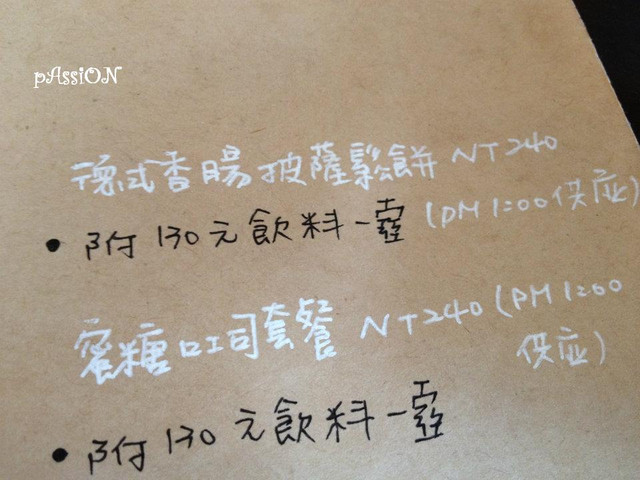 pAssiON
德式香腸披薩鬆餅 NT240
(PM 1:00 供应)
• 附 130 元飲料一壺
蜜糖吐司套餐 NT240 (PM 1:00
供应)
• 附 130 元飲料一壺